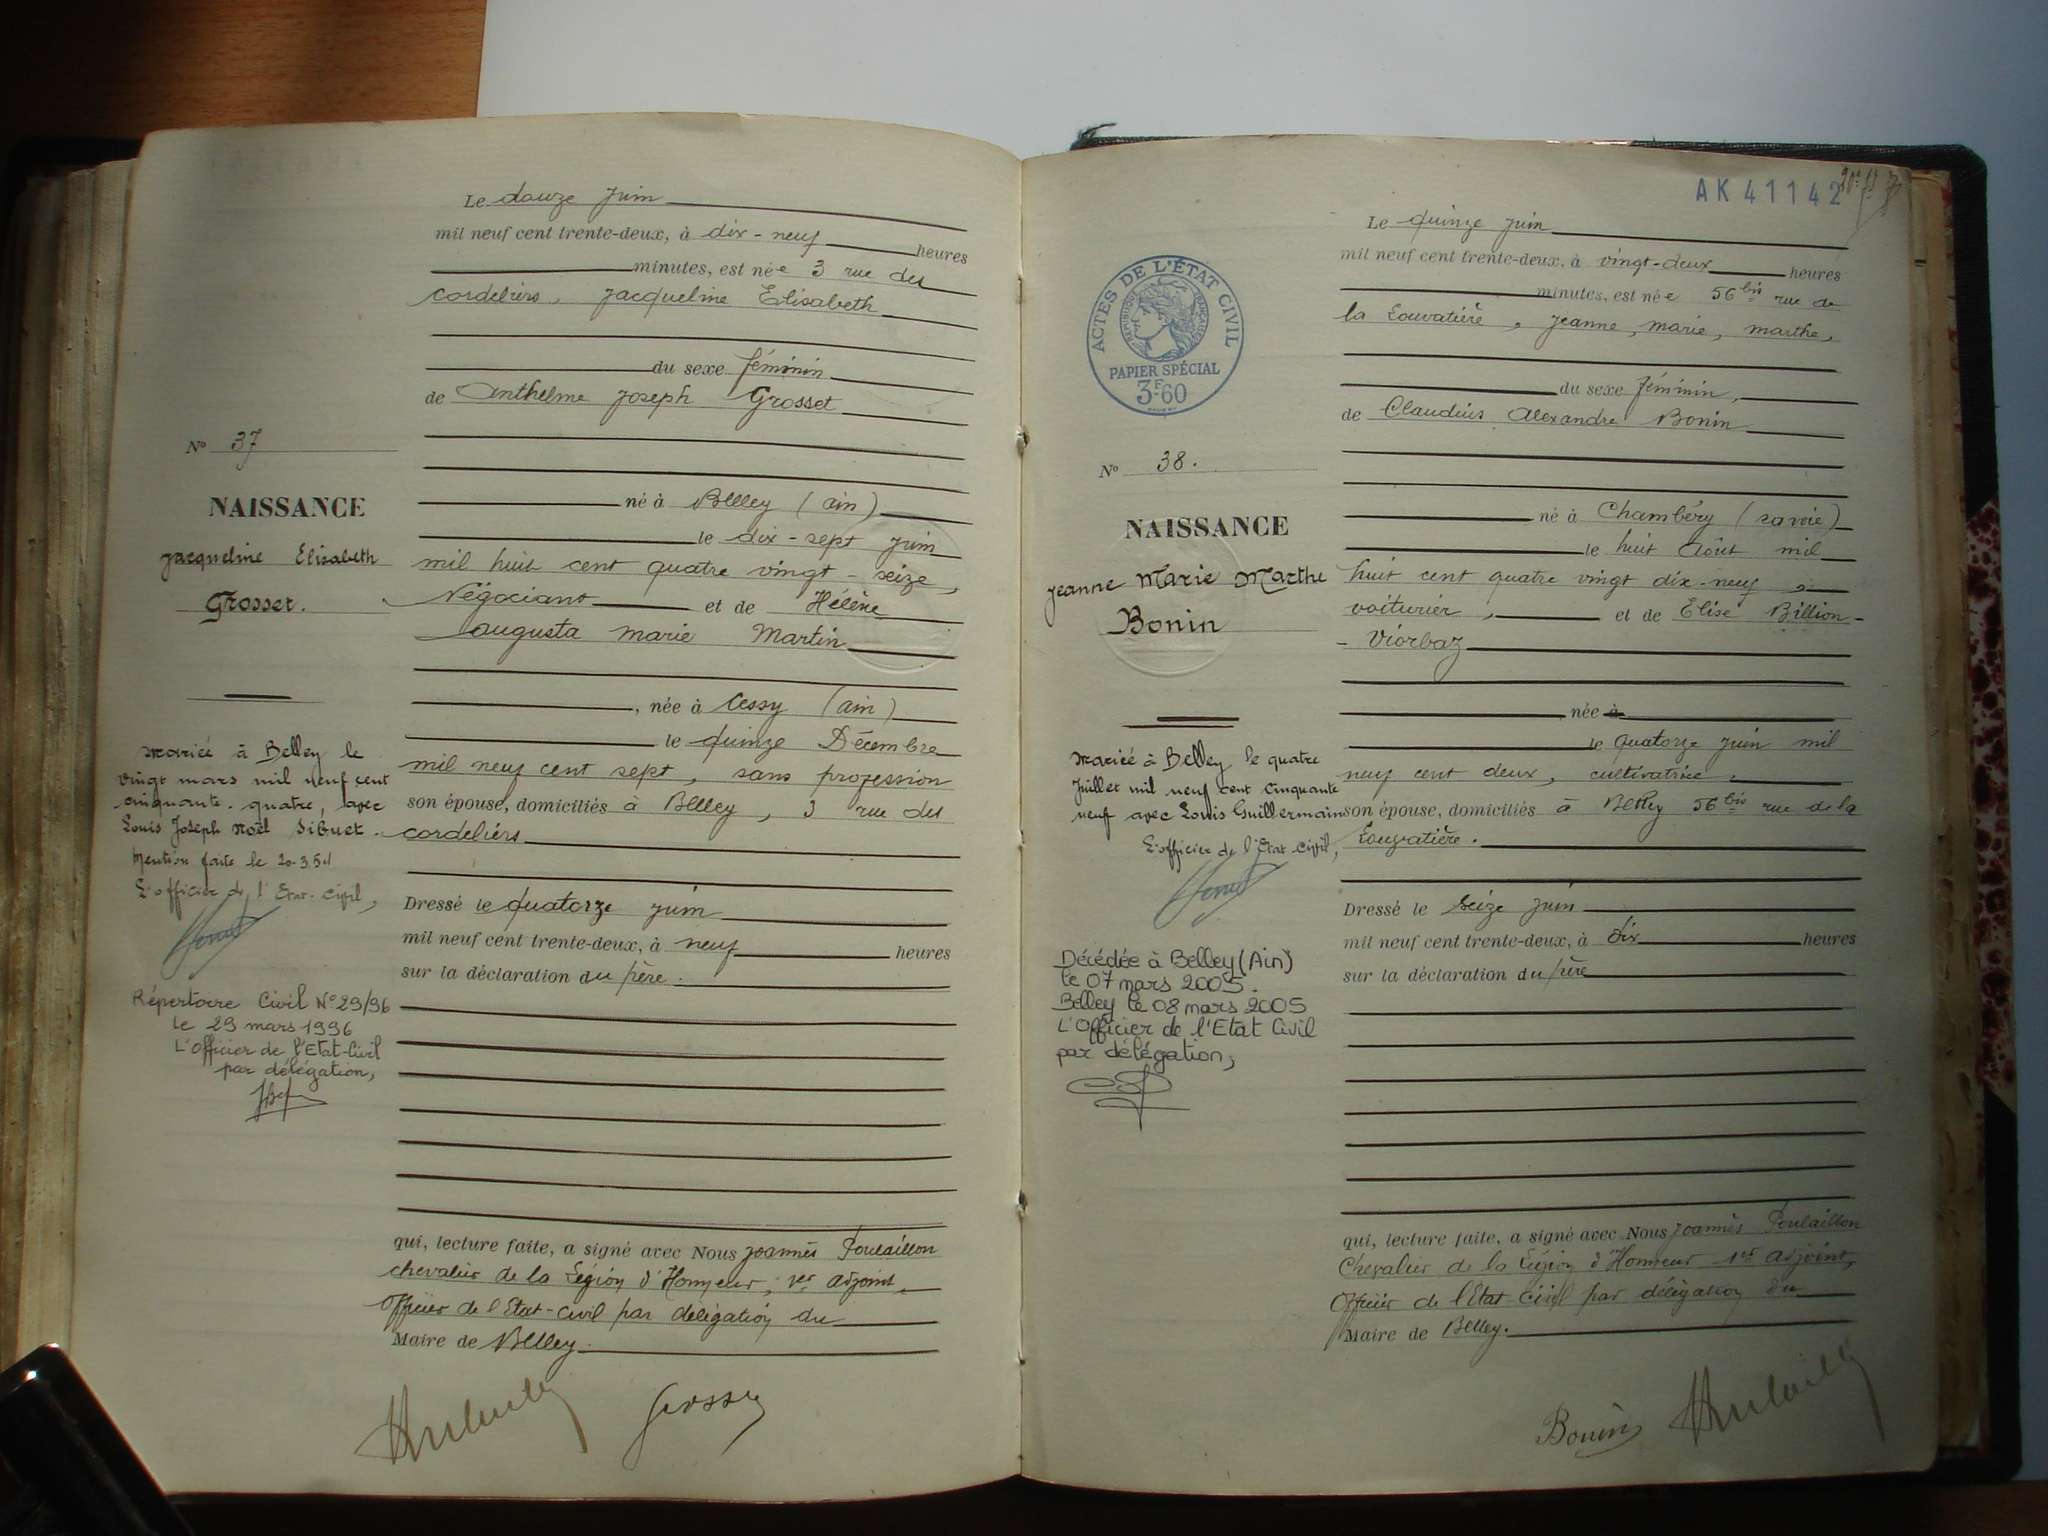 Le douze juin
mil neuf cent trente-deux, à dix-neuf heures
minutes, est née 3 rue des
cordeliers, Jacqueline Elisabeth
du sexe féminin
de Anthelme Joseph Grosset
né à Belley (ain)
le dix-sept juin
mil huit cent quatre vingt-seize,
Négociant et de Hélène
augusta marie Martin
, née à Cessy (ain)
le quinze Décembre
mil neuf cent sept, sans profession
son épouse, domiciliés à Belley, 3 rue des
cordeliers
Dressé le quatorze juin
mil neuf cent trente-deux, à neuf heures
sur la déclaration du père.
qui, lecture faite, a signé avec Nous Joannès Poulaillon
chevalier de la Légion d'Honneur, 1er adjoint,
Officier de l'Etat-Civil par délégation du
Maire de Belley.
No 37
NAISSANCE
Jacqueline Elisabeth
Grosset.
Mariée à Belley le
vingt mars mil neuf cent
cinquante-quatre, avec
Louis Joseph Noël Sibuet.
Mention faite le 20.3.54
L'officier de l'Etat-Civil,
Répertoire Civil N° 29/96
le 29 mars 1996
L'Officier de l'Etat-Civil
par délégation,
AK 41142
Le quinze juin
mil neuf cent trente-deux, à vingt-deux heures
minutes, est née 56 bis rue de
la Louvatière, Jeanne, marie, marthe,
du sexe féminin,
de Claudius Alexandre Bonin
né à Chambéry (savoie)
le huit Août mil
huit cent quatre vingt dix-neuf,
voiturier, et de Elise Billion-
-Viorbaz
née à
le quatorze juin mil
neuf cent deux, cultivatrice,
son épouse, domiciliés à Belley 56 bis rue de la
Louvatière.
Dressé le seize juin
mil neuf cent trente-deux, à dix heures
sur la déclaration du père
qui, lecture faite, a signé avec Nous Joannès Poulaillon
Chevalier de la Légion d'Honneur 1er adjoint,
Officier de l'Etat Civil par délégation du
Maire de Belley.
Bonin
ACTES DE L'ÉTAT CIVIL
RÉPUBLIQUE FRANÇAISE
PAPIER SPÉCIAL
3F.60
No 38.
NAISSANCE
Jeanne Marie Marthe
Bonin
Mariée à Belley le quatre
Juillet mil neuf cent cinquante
neuf avec Louis Guillermain
L'officier de l'Etat Civil,
Décédée à Belley (Ain)
le 07 mars 2005.
Belley le 08 mars 2005
L'Officier de l'Etat Civil
par délégation,